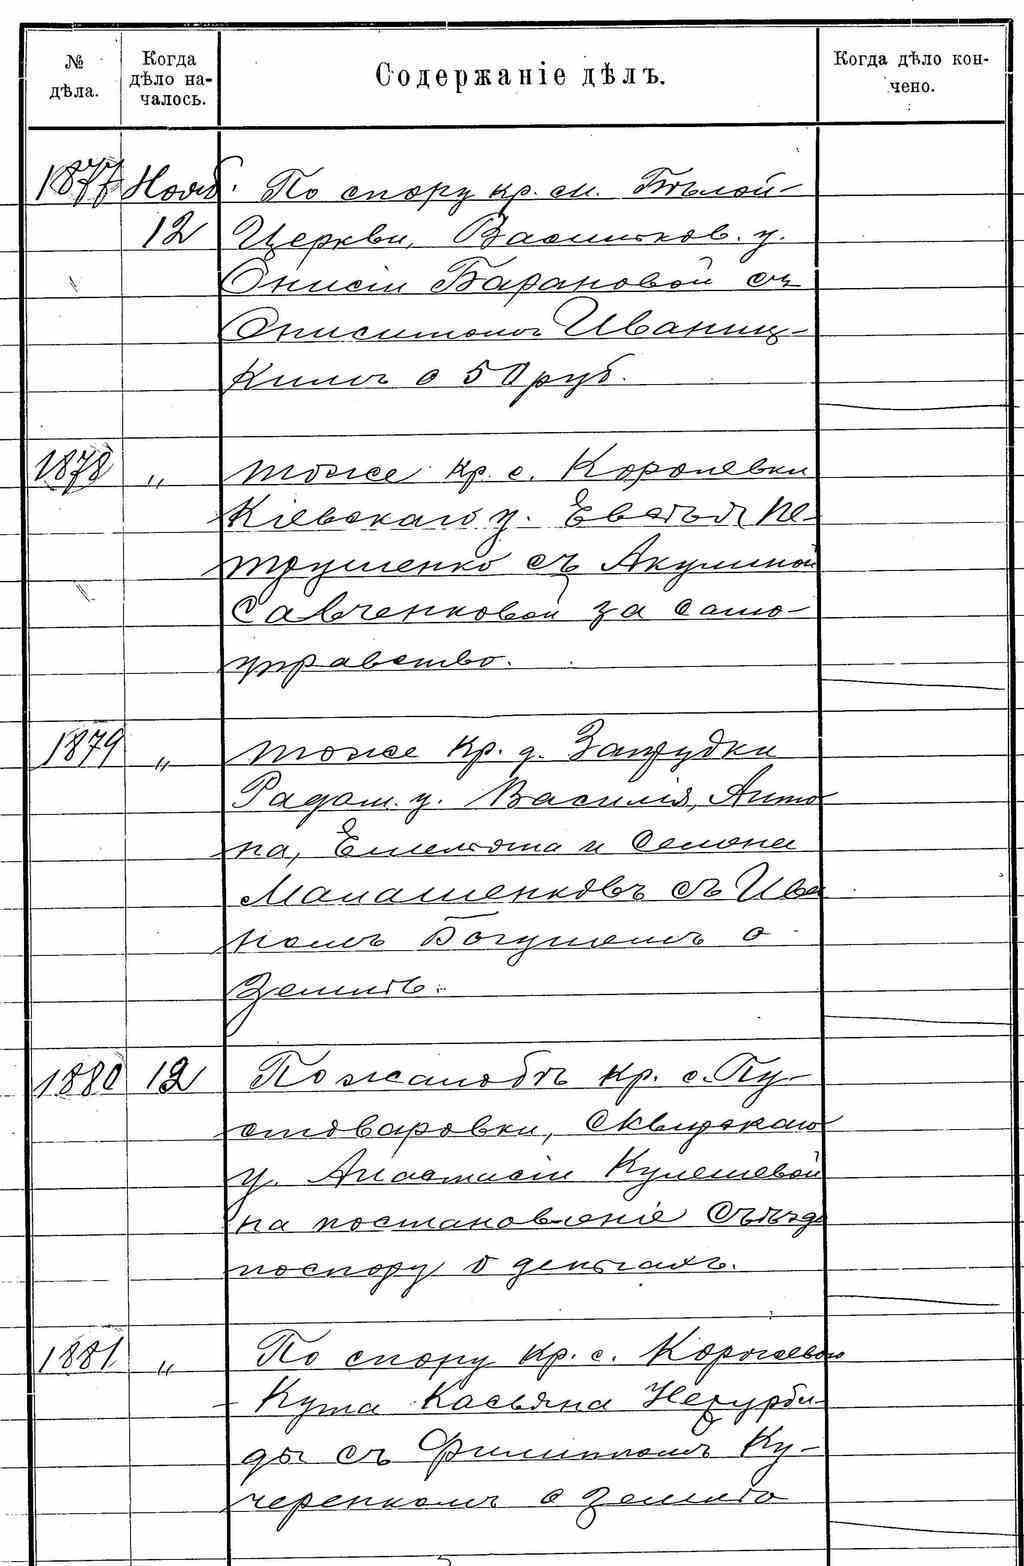 № дѣла.
Когда дѣло на-
чалось.
Содержаніе дѣлъ.
Когда дѣло кон-
чено.
1877 Нояб. По спору кр. м. Бѣлой-
12 Церкви, Васильков. у.
Онисіи Барановой съ
Онисимомъ Иваниц-
кимъ о 50 руб.
1878 „ тоже кр. с. Королевки
Кіевскаго у. Евстья Пе-
трушенко съ Акулиной
Савченковой за само-
управство.
1879 „ тоже кр. д. Запрудки
Радом. у. Василія, Анто
на, Емельяна и Семена
Малашенковъ съ Ива
номъ Богушемъ о
землѣ.
1880 12 По жалобѣ кр. с. Пу-
стоваровки, Сквирскаго
у. Анастасіи Кулешевой
на постановленіе Съѣзда
по спору о деньгахъ.
1881 „ По спору кр. с. Корчеваго
Кута Касьяна Негурби-
ды съ Филиппомъ Ку-
черенкомъ о землѣ